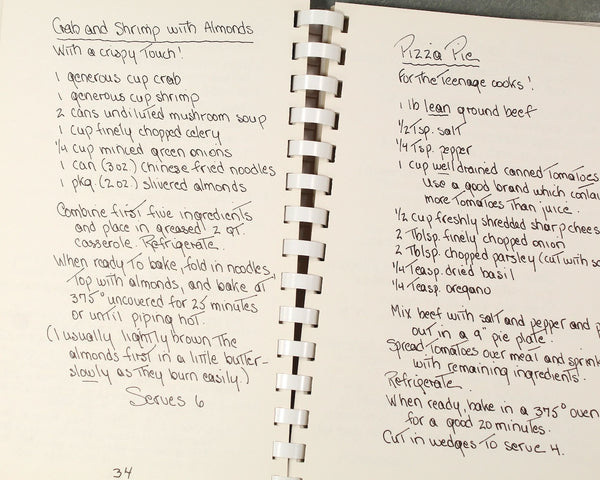 Crab and Shrimp with Almonds
With a crispy Touch!
1 generous cup crab
1 generous cup shrimp
2 cans undiluted mushroom soup
1 cup finely chopped celery
1/4 cup minced green onions
1 can (3 oz.) chinese fried noodles
1 pkg. (2 oz.) slivered almonds
Combine first five ingredients
and place in greased 2 QT.
casserole. Refrigerate.
When ready to bake, fold in noodles,
Top with almonds, and bake at
375° uncovered for 25 minutes
or until piping hot.
(I usually lightly brown the
almonds first in a little butter-
slowly as they burn easily.)
Serves 6
34
Pizzia Pie
For the Teenage cooks!
1 lb lean ground beef
1/2 Tsp. salt
1/4 Tsp. pepper
1 cup well drained canned Tomatoes
Use a good brand which contai
more Tomatoes Than juice.
1/2 cup freshly shredded sharp chees
2 Tblsp. finely chopped onion
2 Tblsp. chopped parsley (cut with sc
1/4 Teasp. dried basil
1/4 Teasp. oregano
Mix beef with salt and pepper and p
out in a 9" pie plate.
Spread Tomatoes over meat and sprink
with remaining ingredients.
Refrigerate.
When ready, bake in a 375° oven
for a good 20 minutes.
Cut in wedges To serve 4.